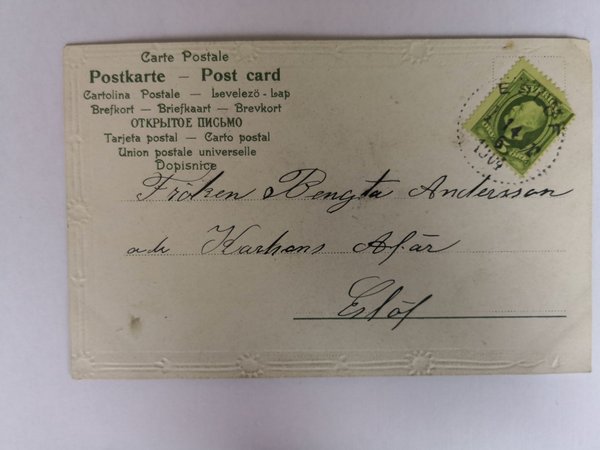 Carte Postale
Postkarte – Post card
Cartolina Postale – Levelezö-Lap
Brefkort – Briefkaart – Brevkort
ОТКРЫТОЕ ПИСЬМО
Tarjeta postal – Carto postal
Union postale universelle
Dopisnice
SVERIGE
5
1904
Fröken Bengta Andersson
adr Karhons Afär
Eslöf